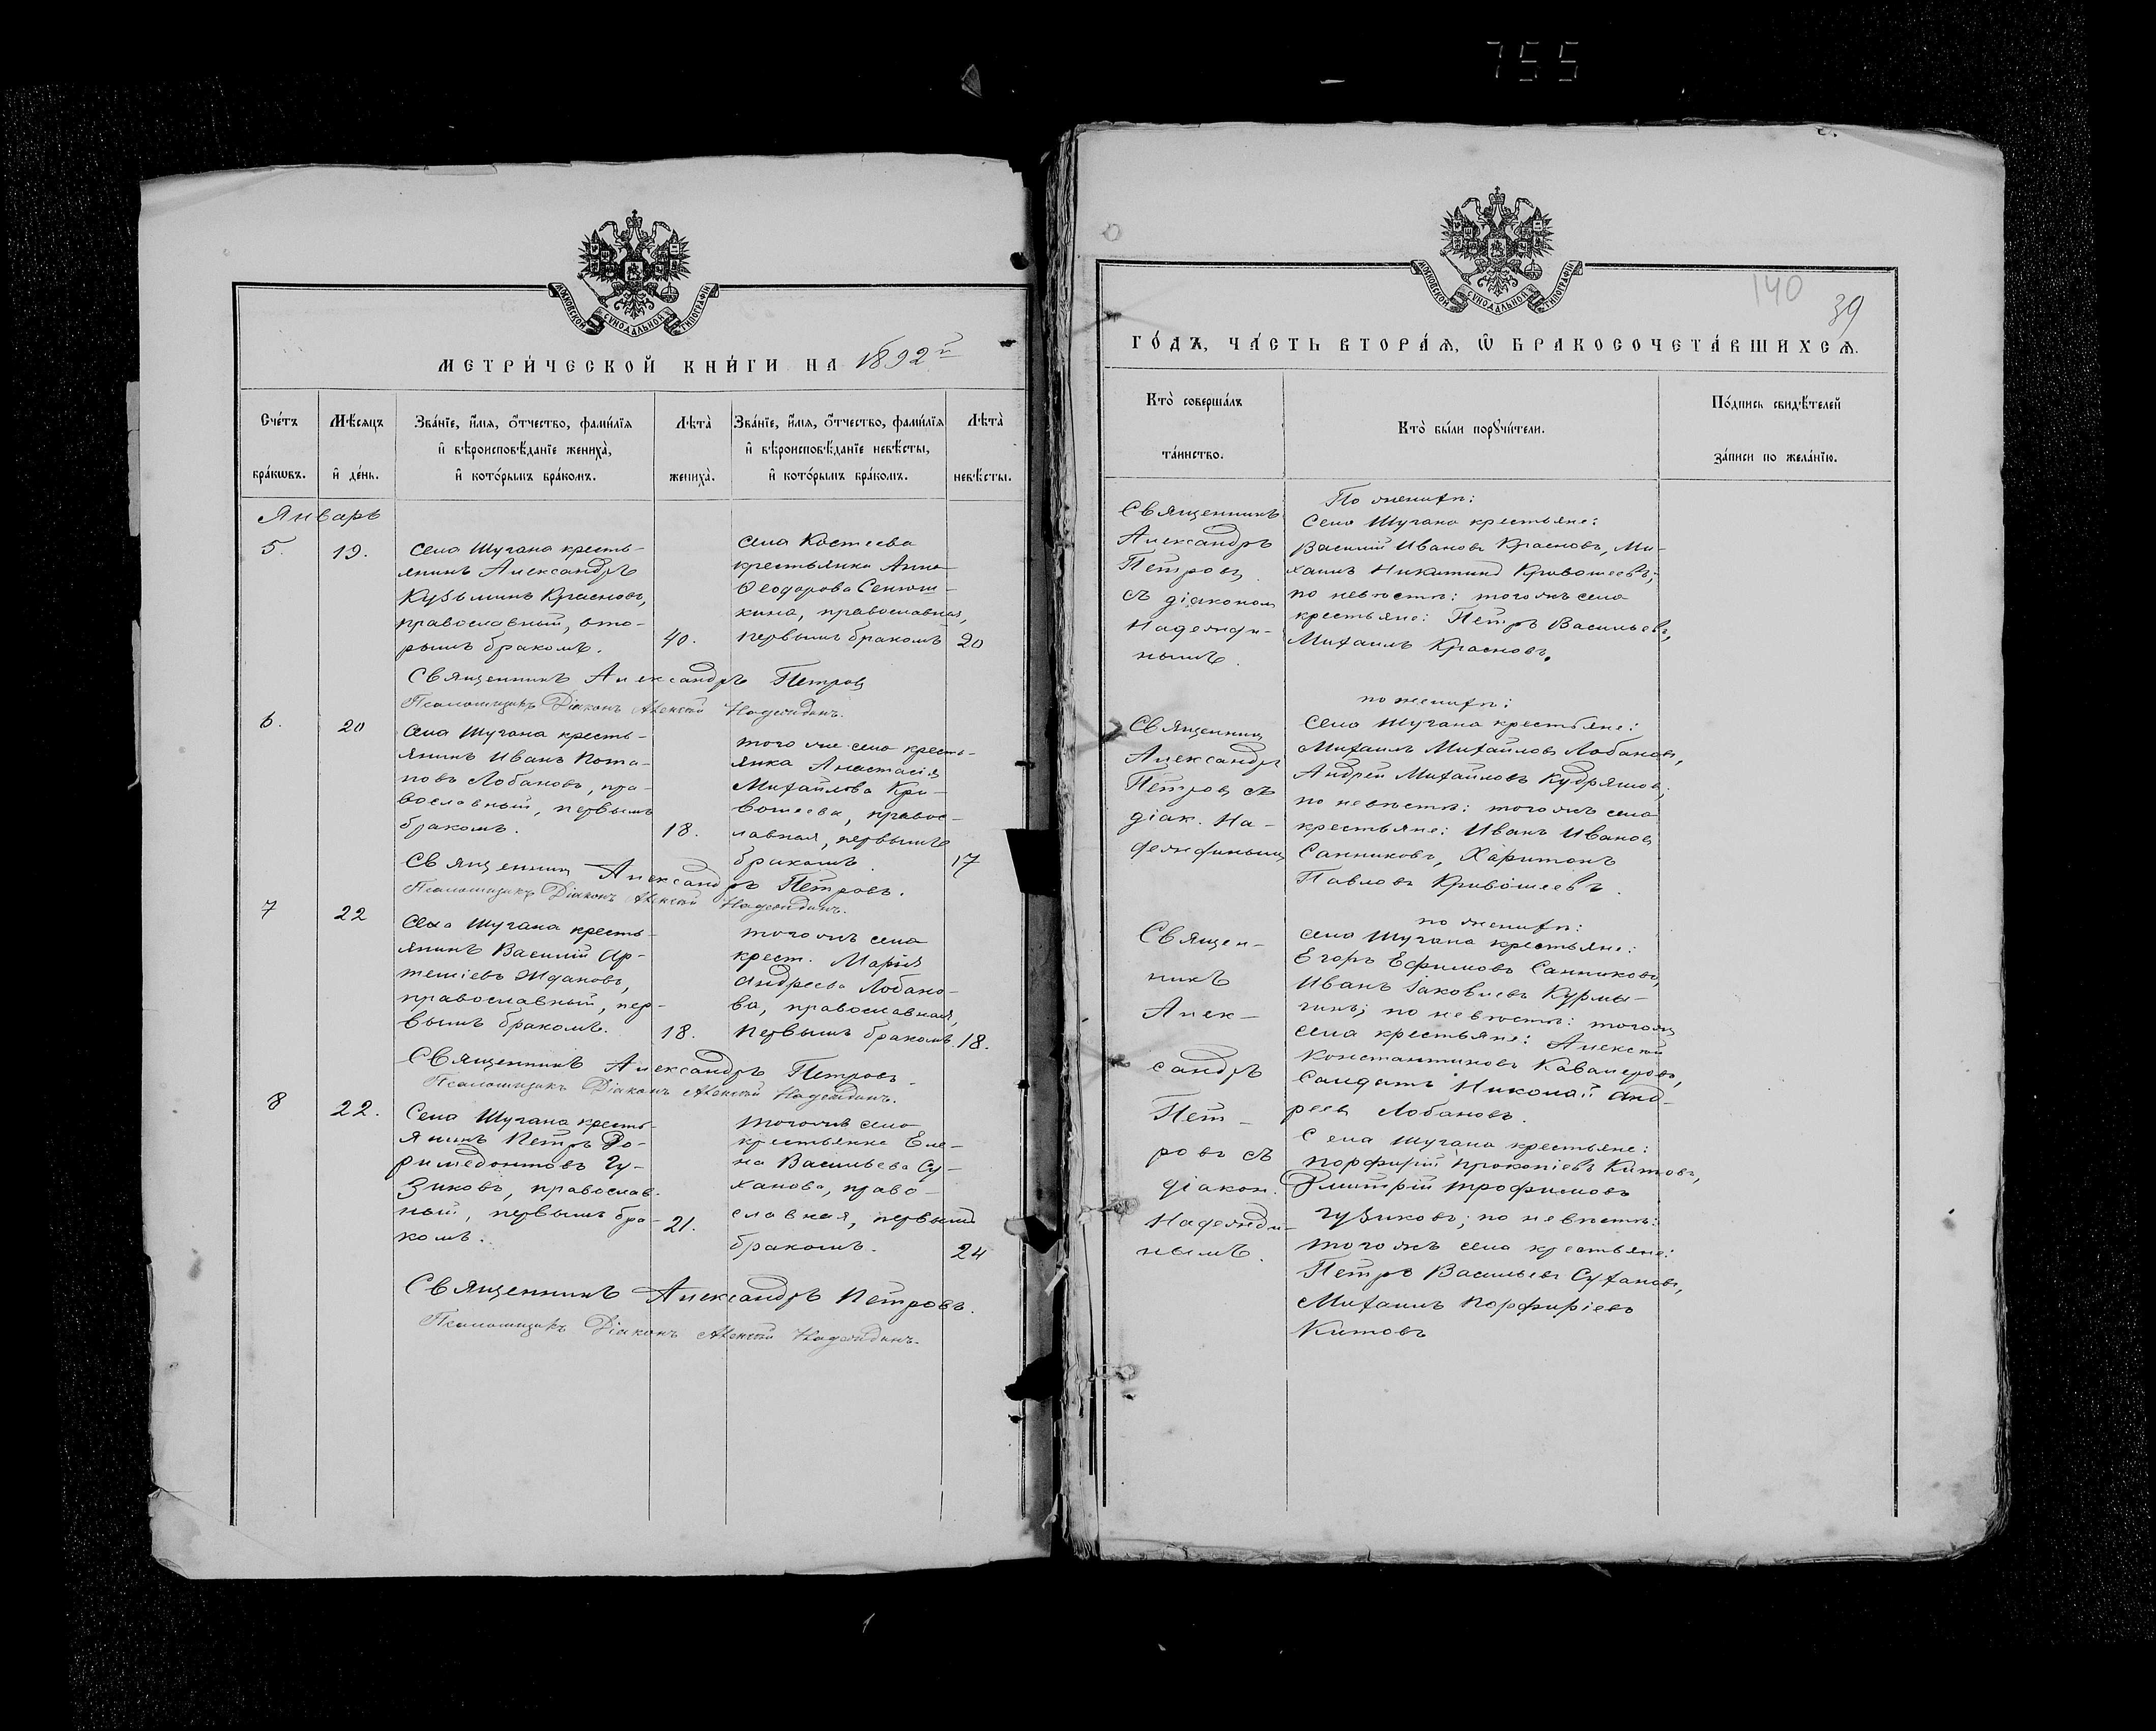 755
МОСКОВСКОЙ СѴНОДАЛЬНОЙ ТИПОГРАФІИ
МЕТРИ́ЧЕСКОЙ КНИ́ГИ НА 1892й
Сче́тъ
бра́кѡвъ.
Мѣ́сяцъ
и҆ де́нь.
Зва́нїе, и҆́мя, ѻ҆́тчество, фами́лїя
и҆ вѣроисповѣ́данїе жениха̀,
и҆ кото́рымъ бра́комъ.
Лѣ́та
жениха̀.
Зва́нїе, и҆́мя, ѻ҆́тчество, фами́лїя
и҆ вѣроисповѣ́данїе невѣ́сты,
и҆ кото́рымъ бра́комъ.
Лѣ́та
невѣ́сты.
Январь
5.
19.
Села Шугана кресть-
янинъ Александръ
Кузьминъ Красновъ,
православный, вто-
рымъ бракомъ.
40.
Села Костеева
крестьянка Анна
Ѳеодорова Сенюш-
кина, православная,
первымъ бракомъ
20
Священникъ Александръ Петровъ
Псаломщикъ Діаконъ Алексѣй Надеждинъ.
6.
20
Села Шугана кресть-
янинъ Иванъ Пота-
повъ Лобановъ, пра-
вославный, первымъ
бракомъ.
18.
того же села кресть-
янка Анастасія
Михайлова Кри-
вошеева, правос-
лавная, первымъ
бракомъ.
17
Священникъ Александръ Петровъ.
Псаломщикъ Діаконъ Алексѣй Надеждинъ.
7
22
Села Шугана кресть-
янинъ Василій Ар-
темiевъ Ждановъ,
православный, пер-
вымъ бракомъ.
18.
тогожъ села
крест. Марія
Андреева Лобано-
ва, православная,
первымъ бракомъ.
18.
Священникъ Александръ Петровъ.
Псаломщикъ Діаконъ Алексѣй Надеждинъ.
8
22.
Села Шугана кресть-
янинъ Петръ До-
римедонтовъ Гу-
зиковъ, православ-
ный, первымъ бра-
комъ.
21.
тогожъ села
крестьянка Еле-
на Васильева Су-
ханова, право-
славная, первымъ
бракомъ.
24
Священникъ Александръ Петровъ.
Псаломщикъ Діаконъ Алексѣй Надеждинъ.
140
39
МОСКОВСКОЙ СѴНОДАЛЬНОЙ ТИПОГРАФІИ
ГО́ДЪ, ЧА́СТЬ ВТОРА́Ѧ, Ѡ҆ БРАКОСОЧЕТА́ВШИХСѦ.
Кто̀ соверша́лъ
та́инство.
Кто̀ бы́ли порꙋчи́тели.
По́дпись свидѣ́телей
за́писи по жела́нїю.
Священникъ
Александръ
Петровъ
съ діакономъ
Надежди-
нымъ.
По женихѣ:
Села Шугана крестьяне:
Василій Ивановъ Красновъ, Ми-
хаилъ Никитинъ Кривошеевъ;
по невѣстѣ: тогожъ села
крестьяне: Петръ Васильевъ,
Михаилъ Красновъ.
Священникъ
Александръ
Петровъ съ
діак. На-
деждинымъ
по женихѣ:
Села Шугана крестьяне:
Михаилъ Михайловъ Лобановъ,
Андрей Михайловъ Кудряшовъ;
по невѣстѣ: тогожъ села
крестьяне: Иванъ Ивановъ
Санниковъ, Харитонъ
Павловъ Кривошеевъ.
Священ-
никъ
Алек-
сандръ
Пет-
ровъ съ
діакон.
Надежди-
нымъ.
по женихѣ:
села Шугана крестьяне:
Егоръ Ефимовъ Санниковъ,
Иванъ Іаковлевъ Курмы-
гинъ; по невѣстѣ: тогожъ
села крестьяне: Алексѣй
Константиновъ Кавалеровъ,
Солдатъ Николай Анд-
реевъ Лобановъ.
Села Шугана крестьяне:
Порфирій Прокопіевъ Китовъ,
Димитрій Трофимовъ
Гузиковъ; по невѣстѣ:
тогожъ села крестьяне:
Петръ Васильевъ Сухановъ,
Михаилъ Порфиріевъ
Китовъ